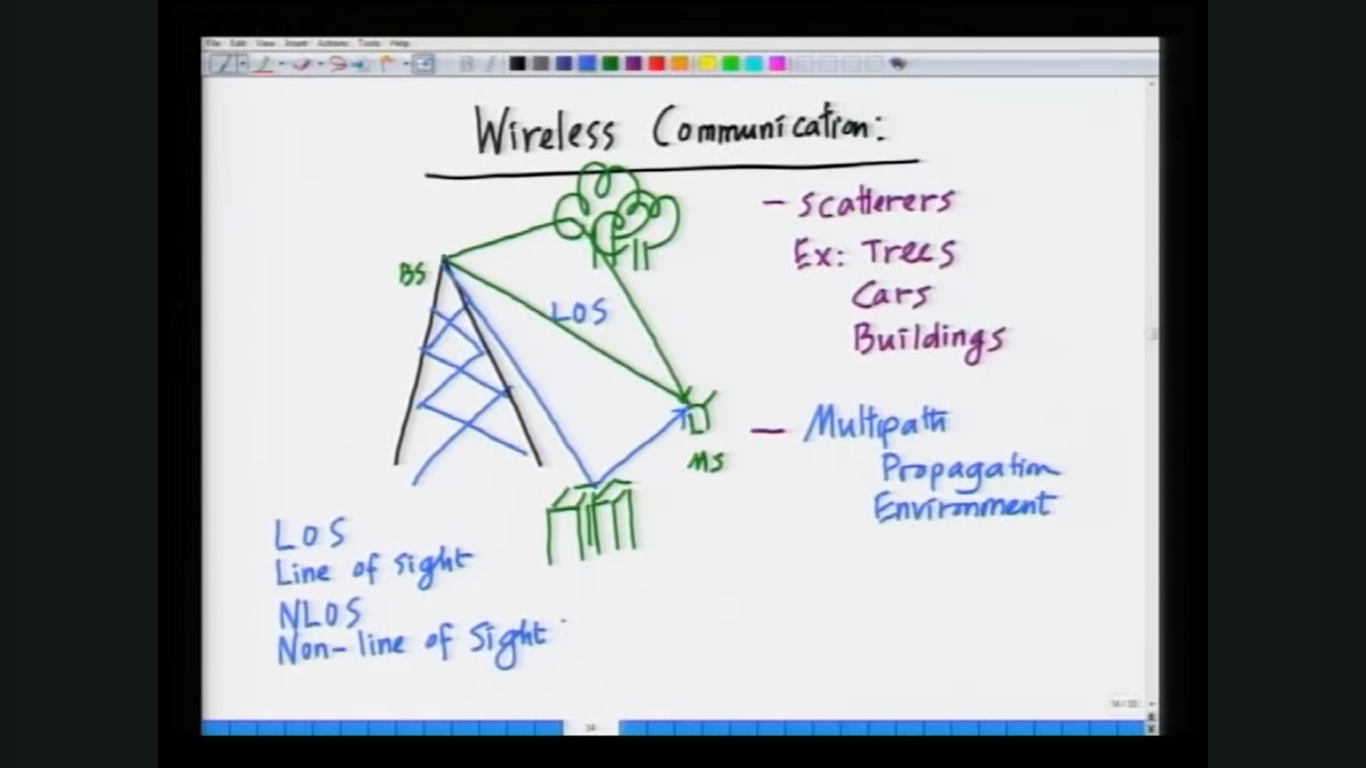 File Edit View Insert Actions Tools Help
Wireless Communication:
- Scatterers
Ex: Trees
Cars
Buildings
BS
LOS
MS
- Multipath
Propagation
Environment
LOS
Line of sight
NLOS
Non-line of Sight